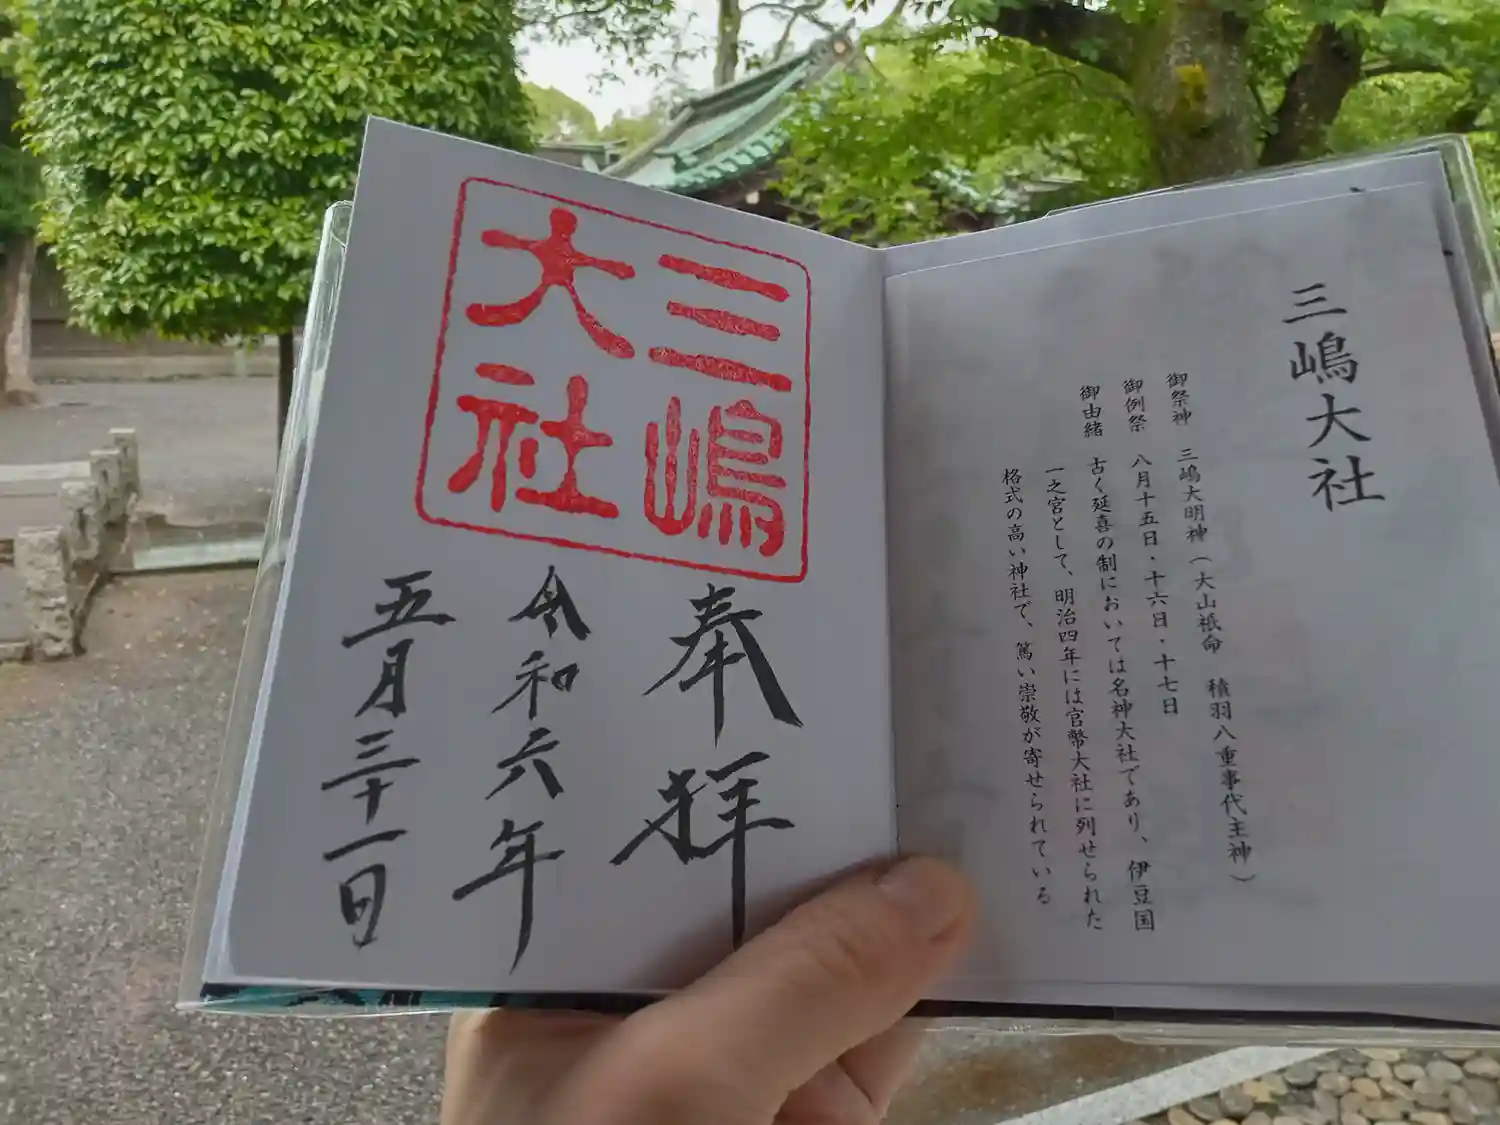 三嶋大社
御祭神 三嶋大明神(大山祇命 積羽八重事代主神)
御例祭 八月十五日・十六日・十七日
御由緒 古く延喜の制においては名神大社であり、伊豆国
一之宮として、明治四年には官幣大社に列せられた
格式の高い神社で、篤い崇敬が寄せられている
三嶋
大社
奉拝
令和六年
五月三十一日